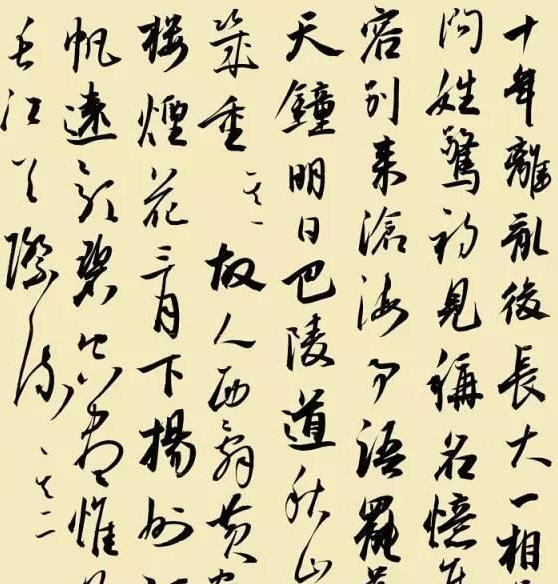 十年離亂後長大一相
问姓驚初見稱名憶
容别来滄海事語罷
天鐘明日巴陵道秋山
幾重 其一 故人西辭黄
樓煙花三月下揚州
帆遠影碧空盡惟
長江天際流 其二